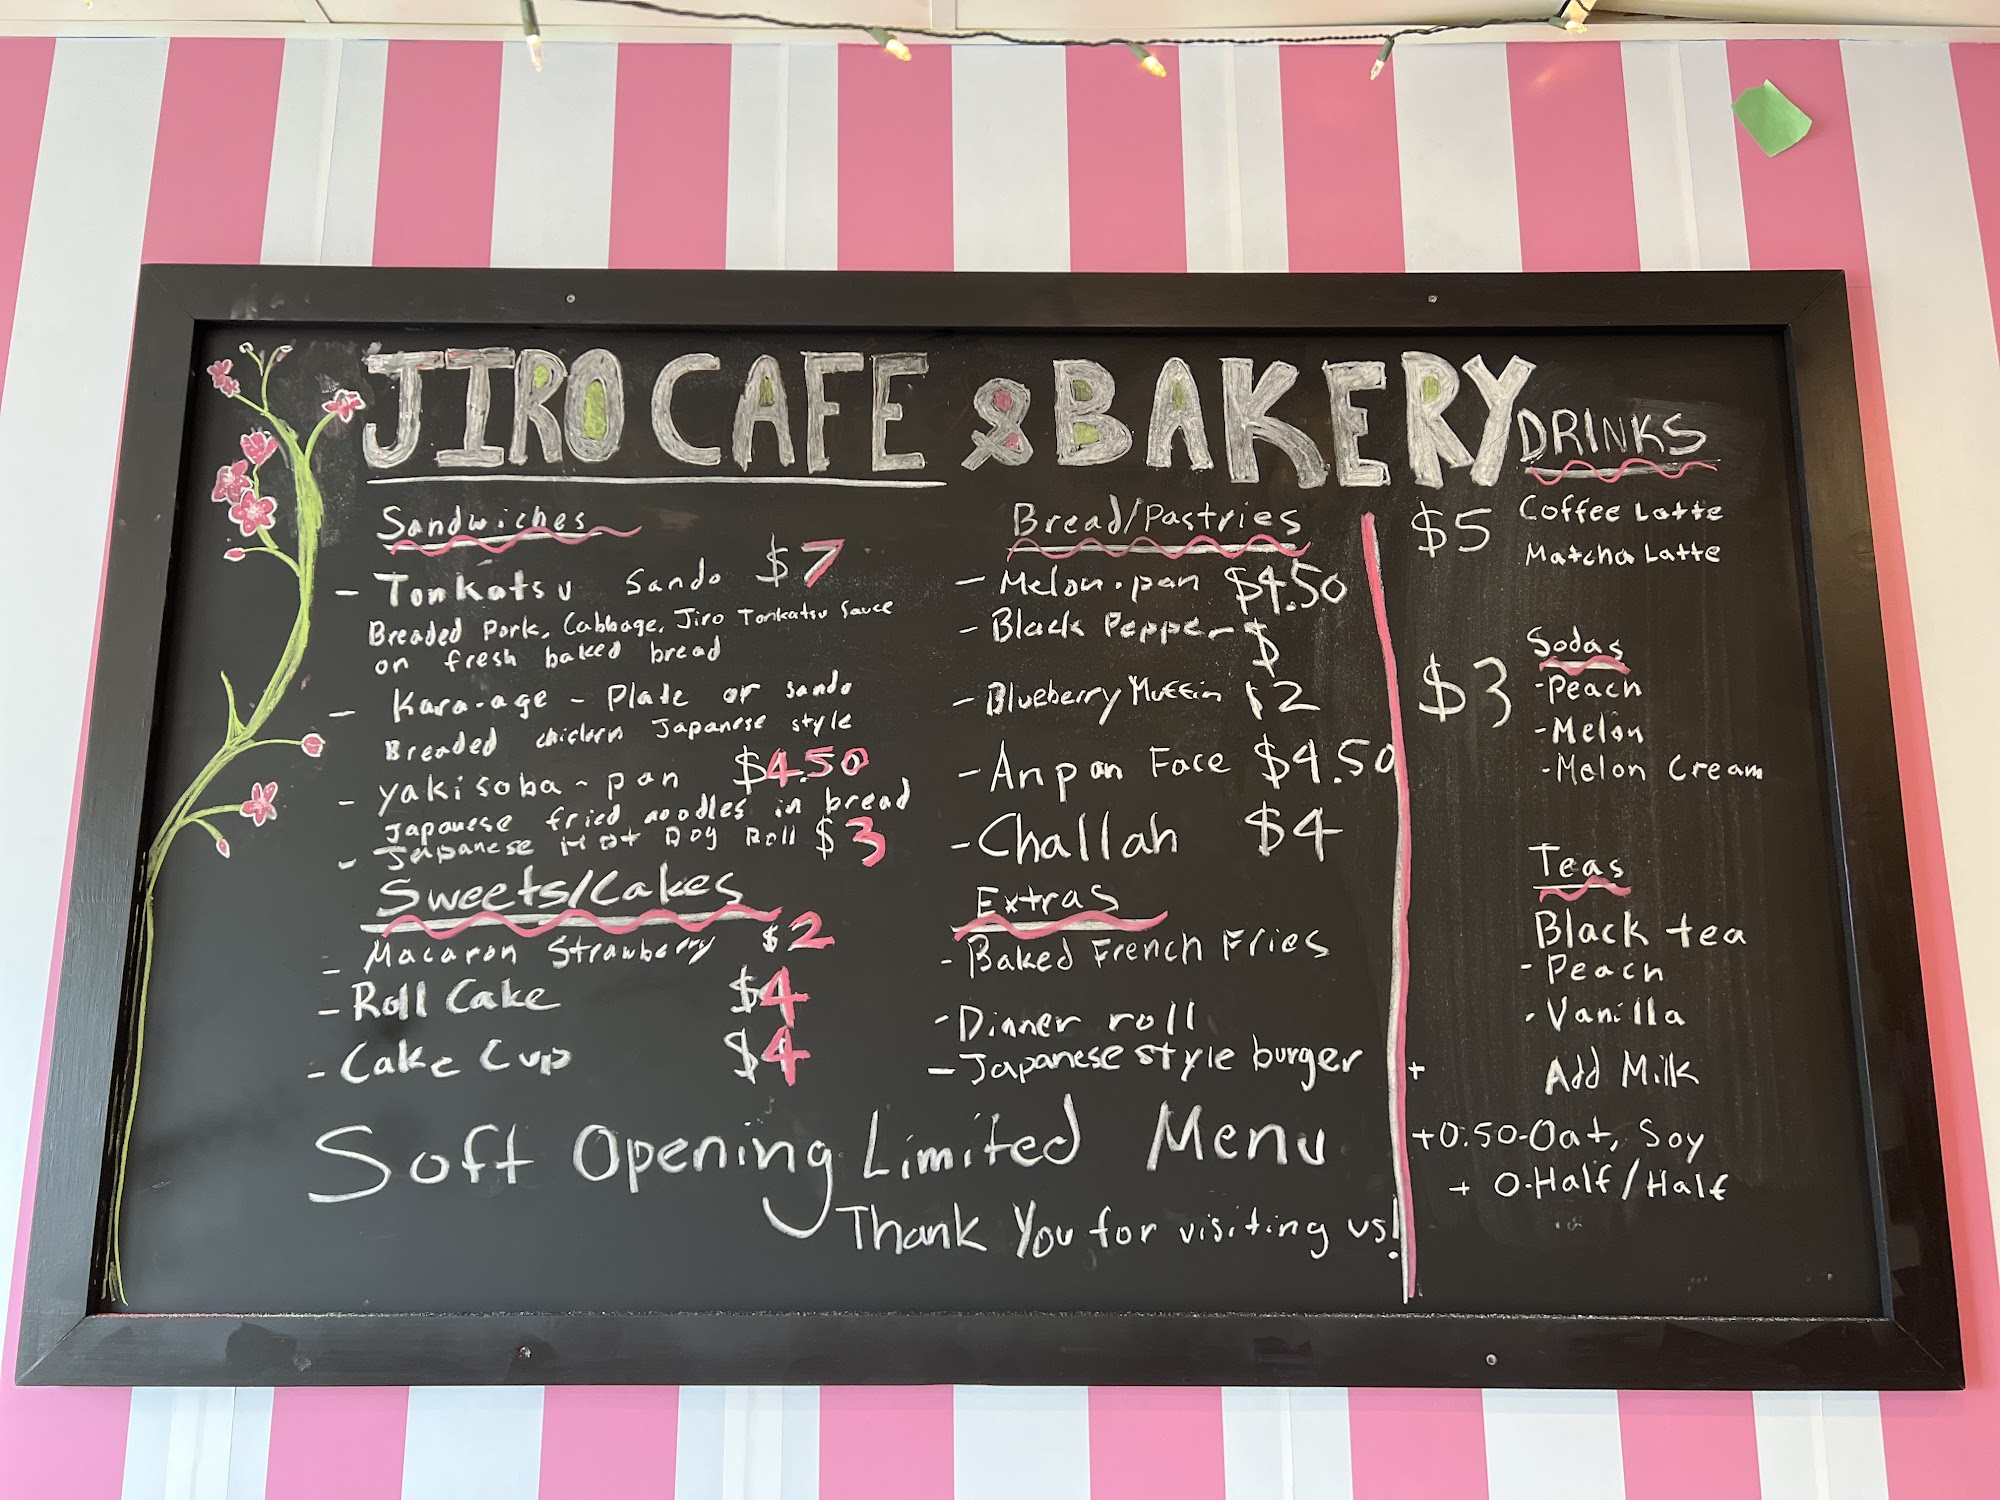 JIRO CAFE & BAKERY
Sandwiches
- Tonkatsu Sando $7
Breaded Pork, Cabbage, Jiro Tonkatsu Sauce
on fresh baked bread
- Kara-age - Plate or sando
Breaded chicken Japanese style
- Yakisoba-pan $4.50
Japanese fried noodles in bread
- Japanese Hot Dog Roll $3
Sweets/Cakes
- Macaron Strawberry $2
- Roll Cake $4
- Cake Cup $4
Bread/Pastries
- Melon-pan $4.50
- Black Pepper $
- Blueberry Muffin $2
- Anpan Face $4.50
- Challah $4
Extras
- Baked French Fries
- Dinner roll
- Japanese style burger
Soft Opening Limited Menu
Thank You for visiting us!
DRINKS
$5 Coffee Latte
Matcha Latte
Sodas
$3 - Peach
- Melon
- Melon Cream
Teas
Black tea
- Peach
- Vanilla
+ Add Milk
+0.50-Oat, Soy
+ 0-Half/Half